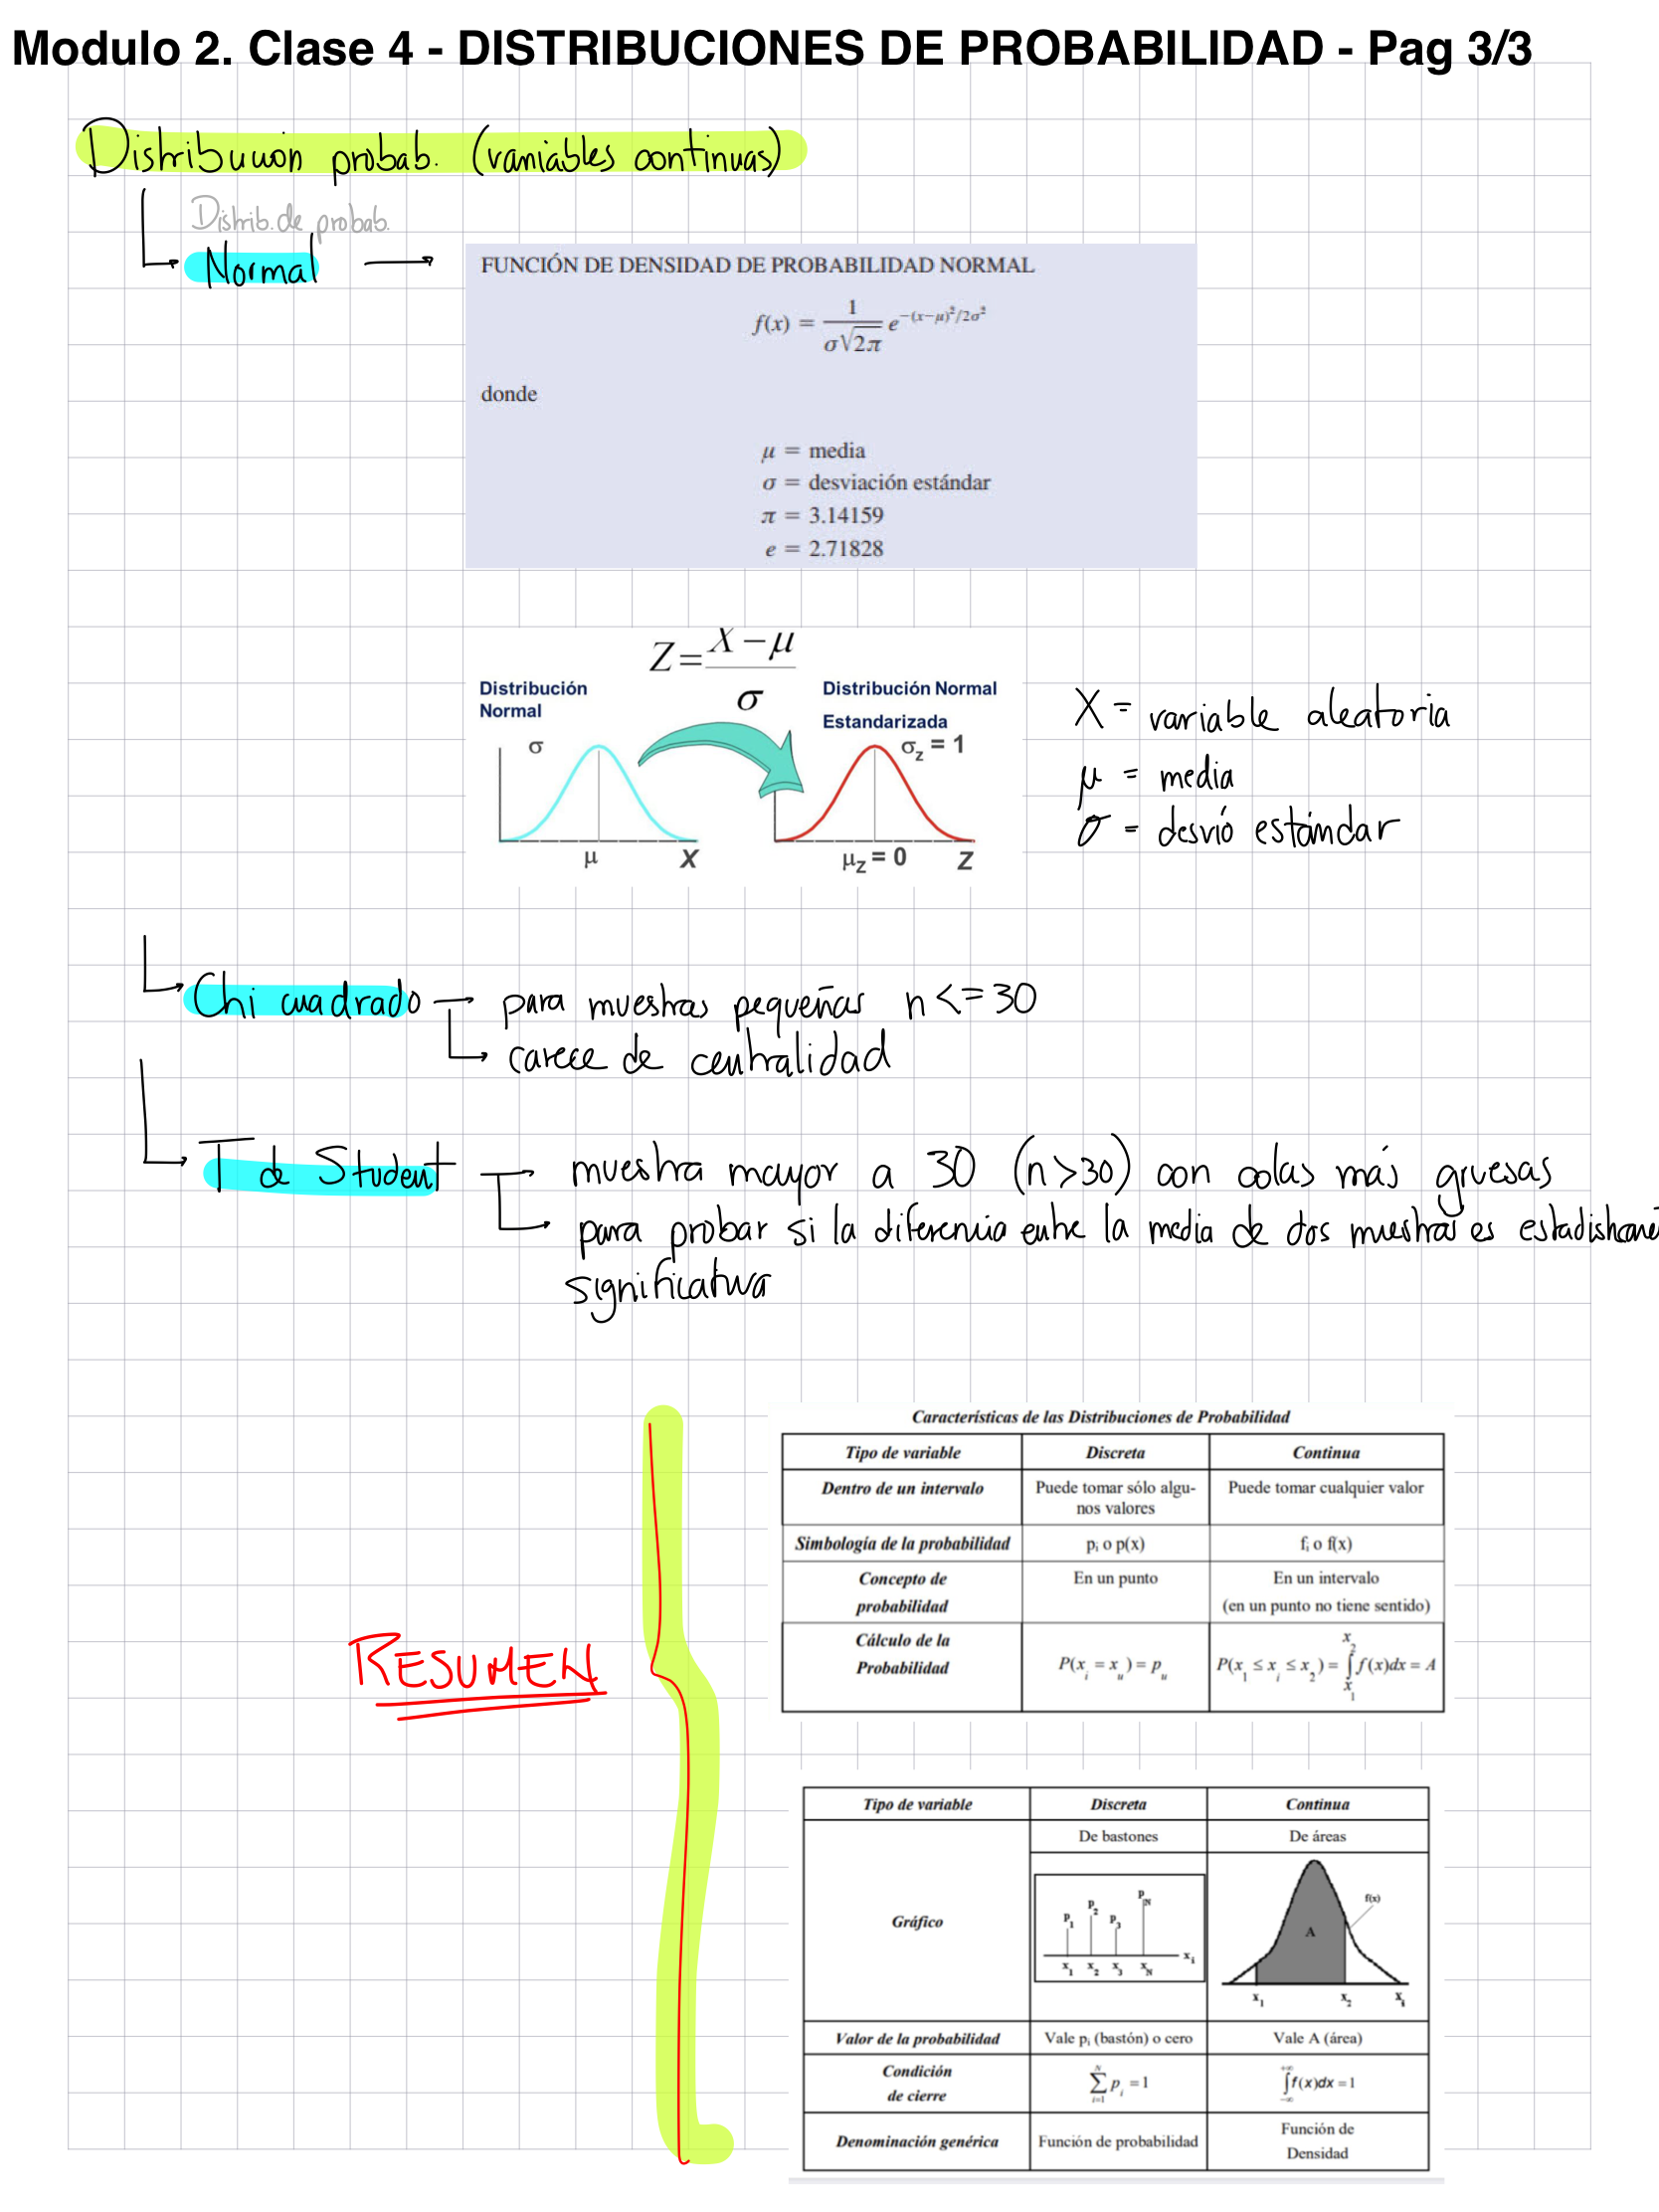 Modulo 2. Clase 4 - DISTRIBUCIONES DE PROBABILIDAD - Pag 3/3
Distribucion probab. (variables continuas)
Distrib. de probab.
Normal
FUNCIÓN DE DENSIDAD DE PROBABILIDAD NORMAL
f(x) = 1 / σ√2π e^−(x−μ)²/2σ²
donde
μ = media
σ = desviación estándar
π = 3.14159
e = 2.71828
Z = X − μ / σ
Distribución Normal
Distribución Normal Estandarizada
σ
σz = 1
μ X
μz = 0 Z
X = variable aleatoria
μ = media
σ = desvió estándar
Chi cuadrado → para muestras pequeñas n <= 30
→ carece de centralidad
T de Student → muestra mayor a 30 (n>30) con colas más gruesas
→ para probar si la diferencia entre la media de dos muestras es
significativa
RESUMEN
Características de las Distribuciones de Probabilidad
Tipo de variable Discreta Continua
Dentro de un intervalo Puede tomar sólo algu-nos valores Puede tomar cualquier valor
Simbología de la probabilidad pi o p(x) fi o f(x)
Concepto de probabilidad En un punto En un intervalo (en un punto no tiene sentido)
Cálculo de la Probabilidad P(xi = xu) = pu P(x1 ≤ xi ≤ x2) = ∫x1x2 f(x)dx = A
Tipo de variable Discreta Continua
De bastones De áreas
Gráfico
P1 P2 P3 PN xi
x1 x2 x3 xN
A f(x)
x1 x2 xi
Valor de la probabilidad Vale pi (bastón) o cero Vale A (área)
Condición de cierre ∑i=1N pi = 1 ∫−∞+∞ f(x)dx = 1
Denominación genérica Función de probabilidad Función de Densidad